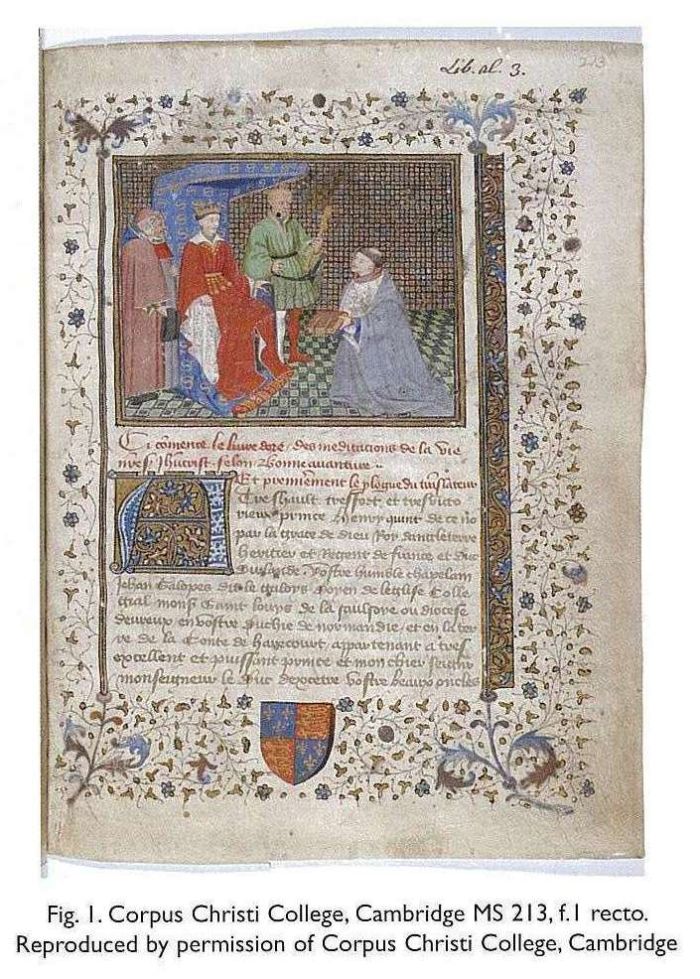 Lib. al. 3.
213
Ci cõmence le liure dore, des meditacions de la vie
nr̃e sr̃ Jhucrist, selon Bonne auanture
Et premierement le plogue du tñslateur
A Treshault tresfort et tresuicto
rieux prince Henry quint de ce nõ
par la grace de dieu Roy dangleterre
heritier et Regent de france et duc
dirlande. Vostre humble chapelain
Jehan Galopes dit le galoys Doyen de leglise Colle
gial monsr̃ saint louys de la saulsoye ou diocese
deureux en vostre duchie de normandie, et en la ter
re de la Conte de harecourt, appartenant a tres
excellent et puissant prince et mon chier seigñr
monseigneur le duc dexcetre vostre beaux oncles
Fig. 1. Corpus Christi College, Cambridge MS 213, f.1 recto.
Reproduced by permission of Corpus Christi College, Cambridge